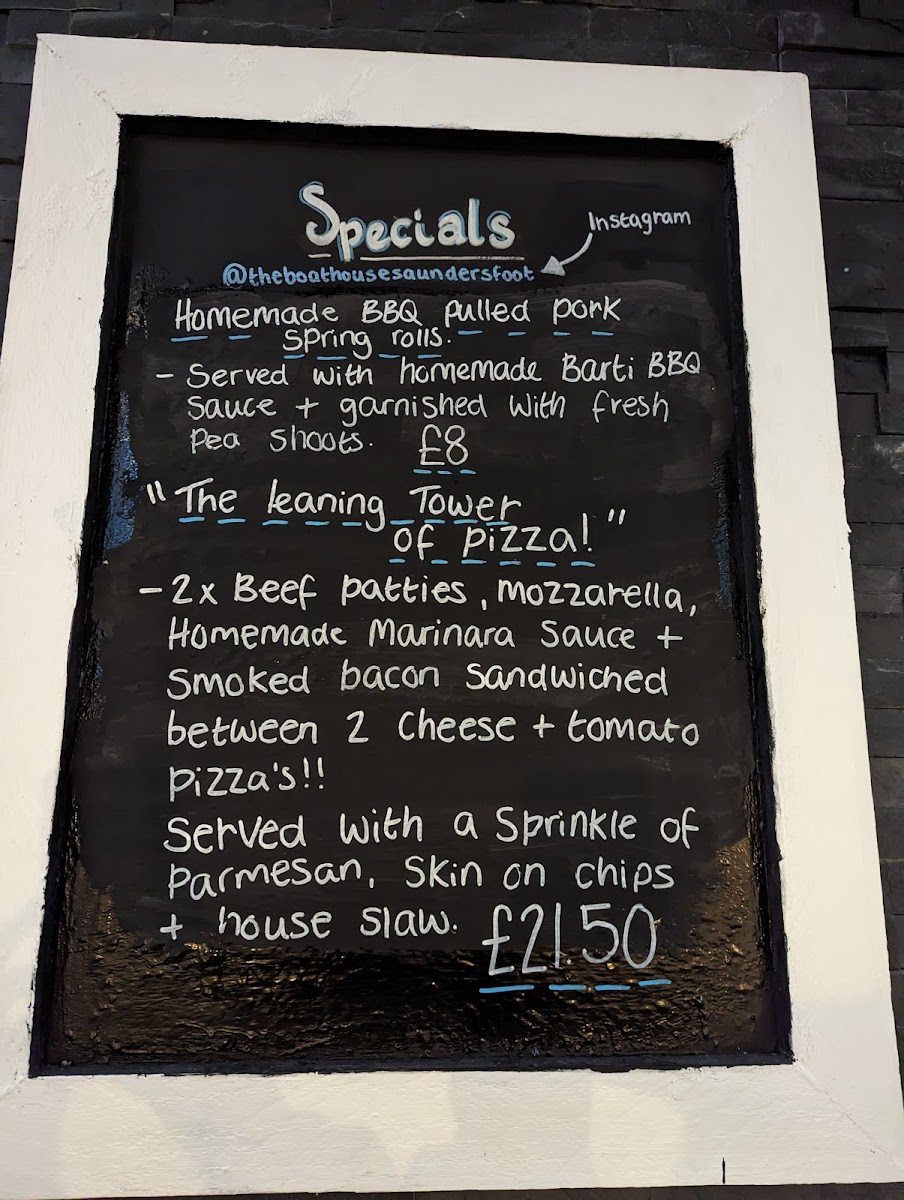 Specials
Instagram
@theboathousesaundersfoot
Homemade BBQ pulled pork
spring rolls.
- Served with homemade Barti BBQ
Sauce + garnished with fresh
Pea shoots. £8
"The leaning Tower
of pizza!"
- 2x Beef patties, Mozzarella,
Homemade Marinara Sauce +
Smoked bacon Sandwiched
between 2 Cheese + tomato
Pizza's!!
Served with a Sprinkle of
Parmesan, Skin on chips
+ house slaw. £21.50